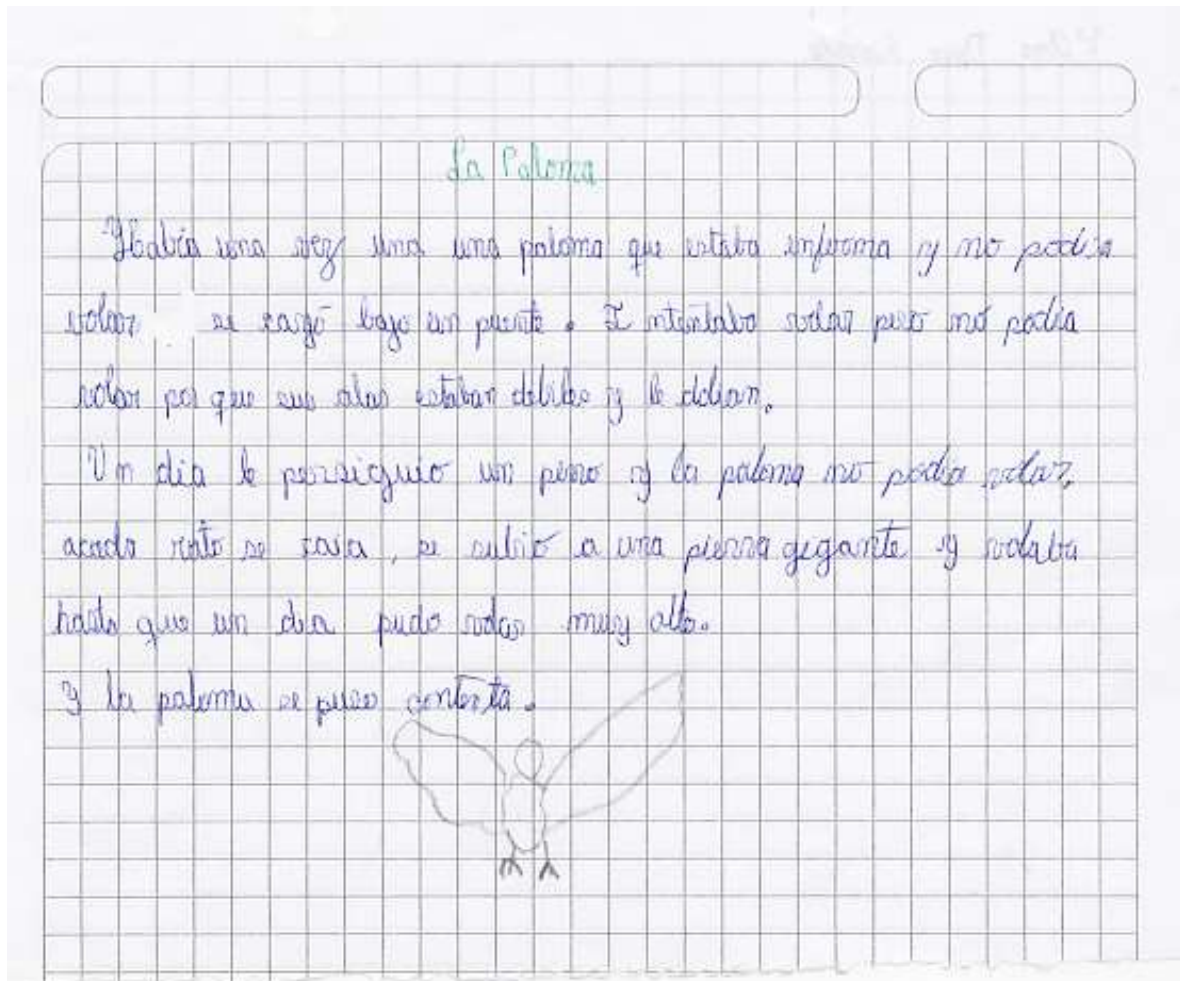 La Paloma
Había una vez una una paloma que estaba enferma y no podia
volar se cayó bajo un puente. I ntentaba volar pero no podia
volar por que sus alas estaban debiles y le dolian.
Un dia le persiguio un perro y la paloma no podia volar,
acada rato se caia, se subio a una pierra gigante y volaba
hasta que un dia pudo volar muy alto.
y la paloma se puso contenta.